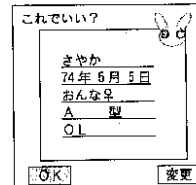 これでいい？
さやか
74年 5月 5日
おんな♀
A 型
OL
OK 変更